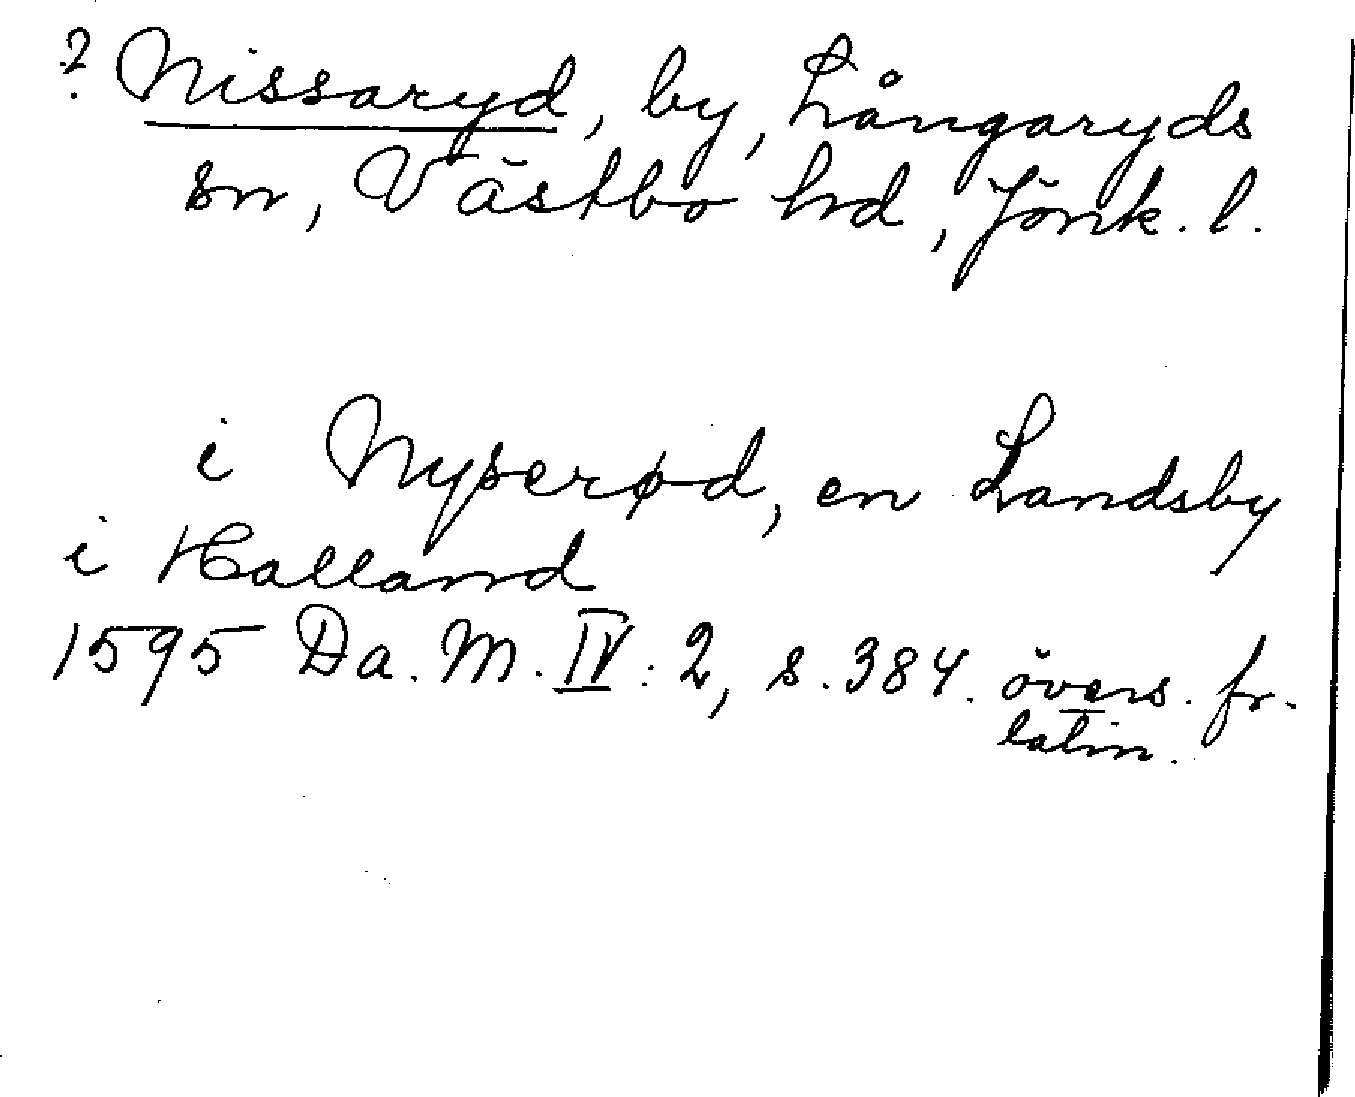 ? Nissaryd, by, Långaryds
sn, Västbo hd, Jönk. l.
i Nyserød, en Landsby
i Halland
1595 Da. M. IV: 2, s. 384. övers. fr.
latin.